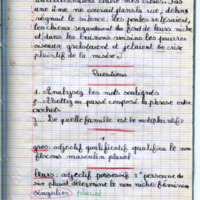 une âme ne couvrait dans la rue ; dehors
régnait le silence. Les portes se fermaient,
les chiens regardaient du fond de leurs niche
et dans les buissons voisins les pauvres
oiseaux grelottaient et jetaient le cri
plaintif de la misère.
Questions
1. Analysez les mots soulignés
2. Mettez au passé composé la phrase entre
crochets
3. De quelle famille est le mot plaintif?
gros: adjectif qualificatif qualifie le nom
flocons masculin pluriel
leurs: adjectif possessif 3e personne du
pluriel détermine le nom niche féminin
singulier pluriel